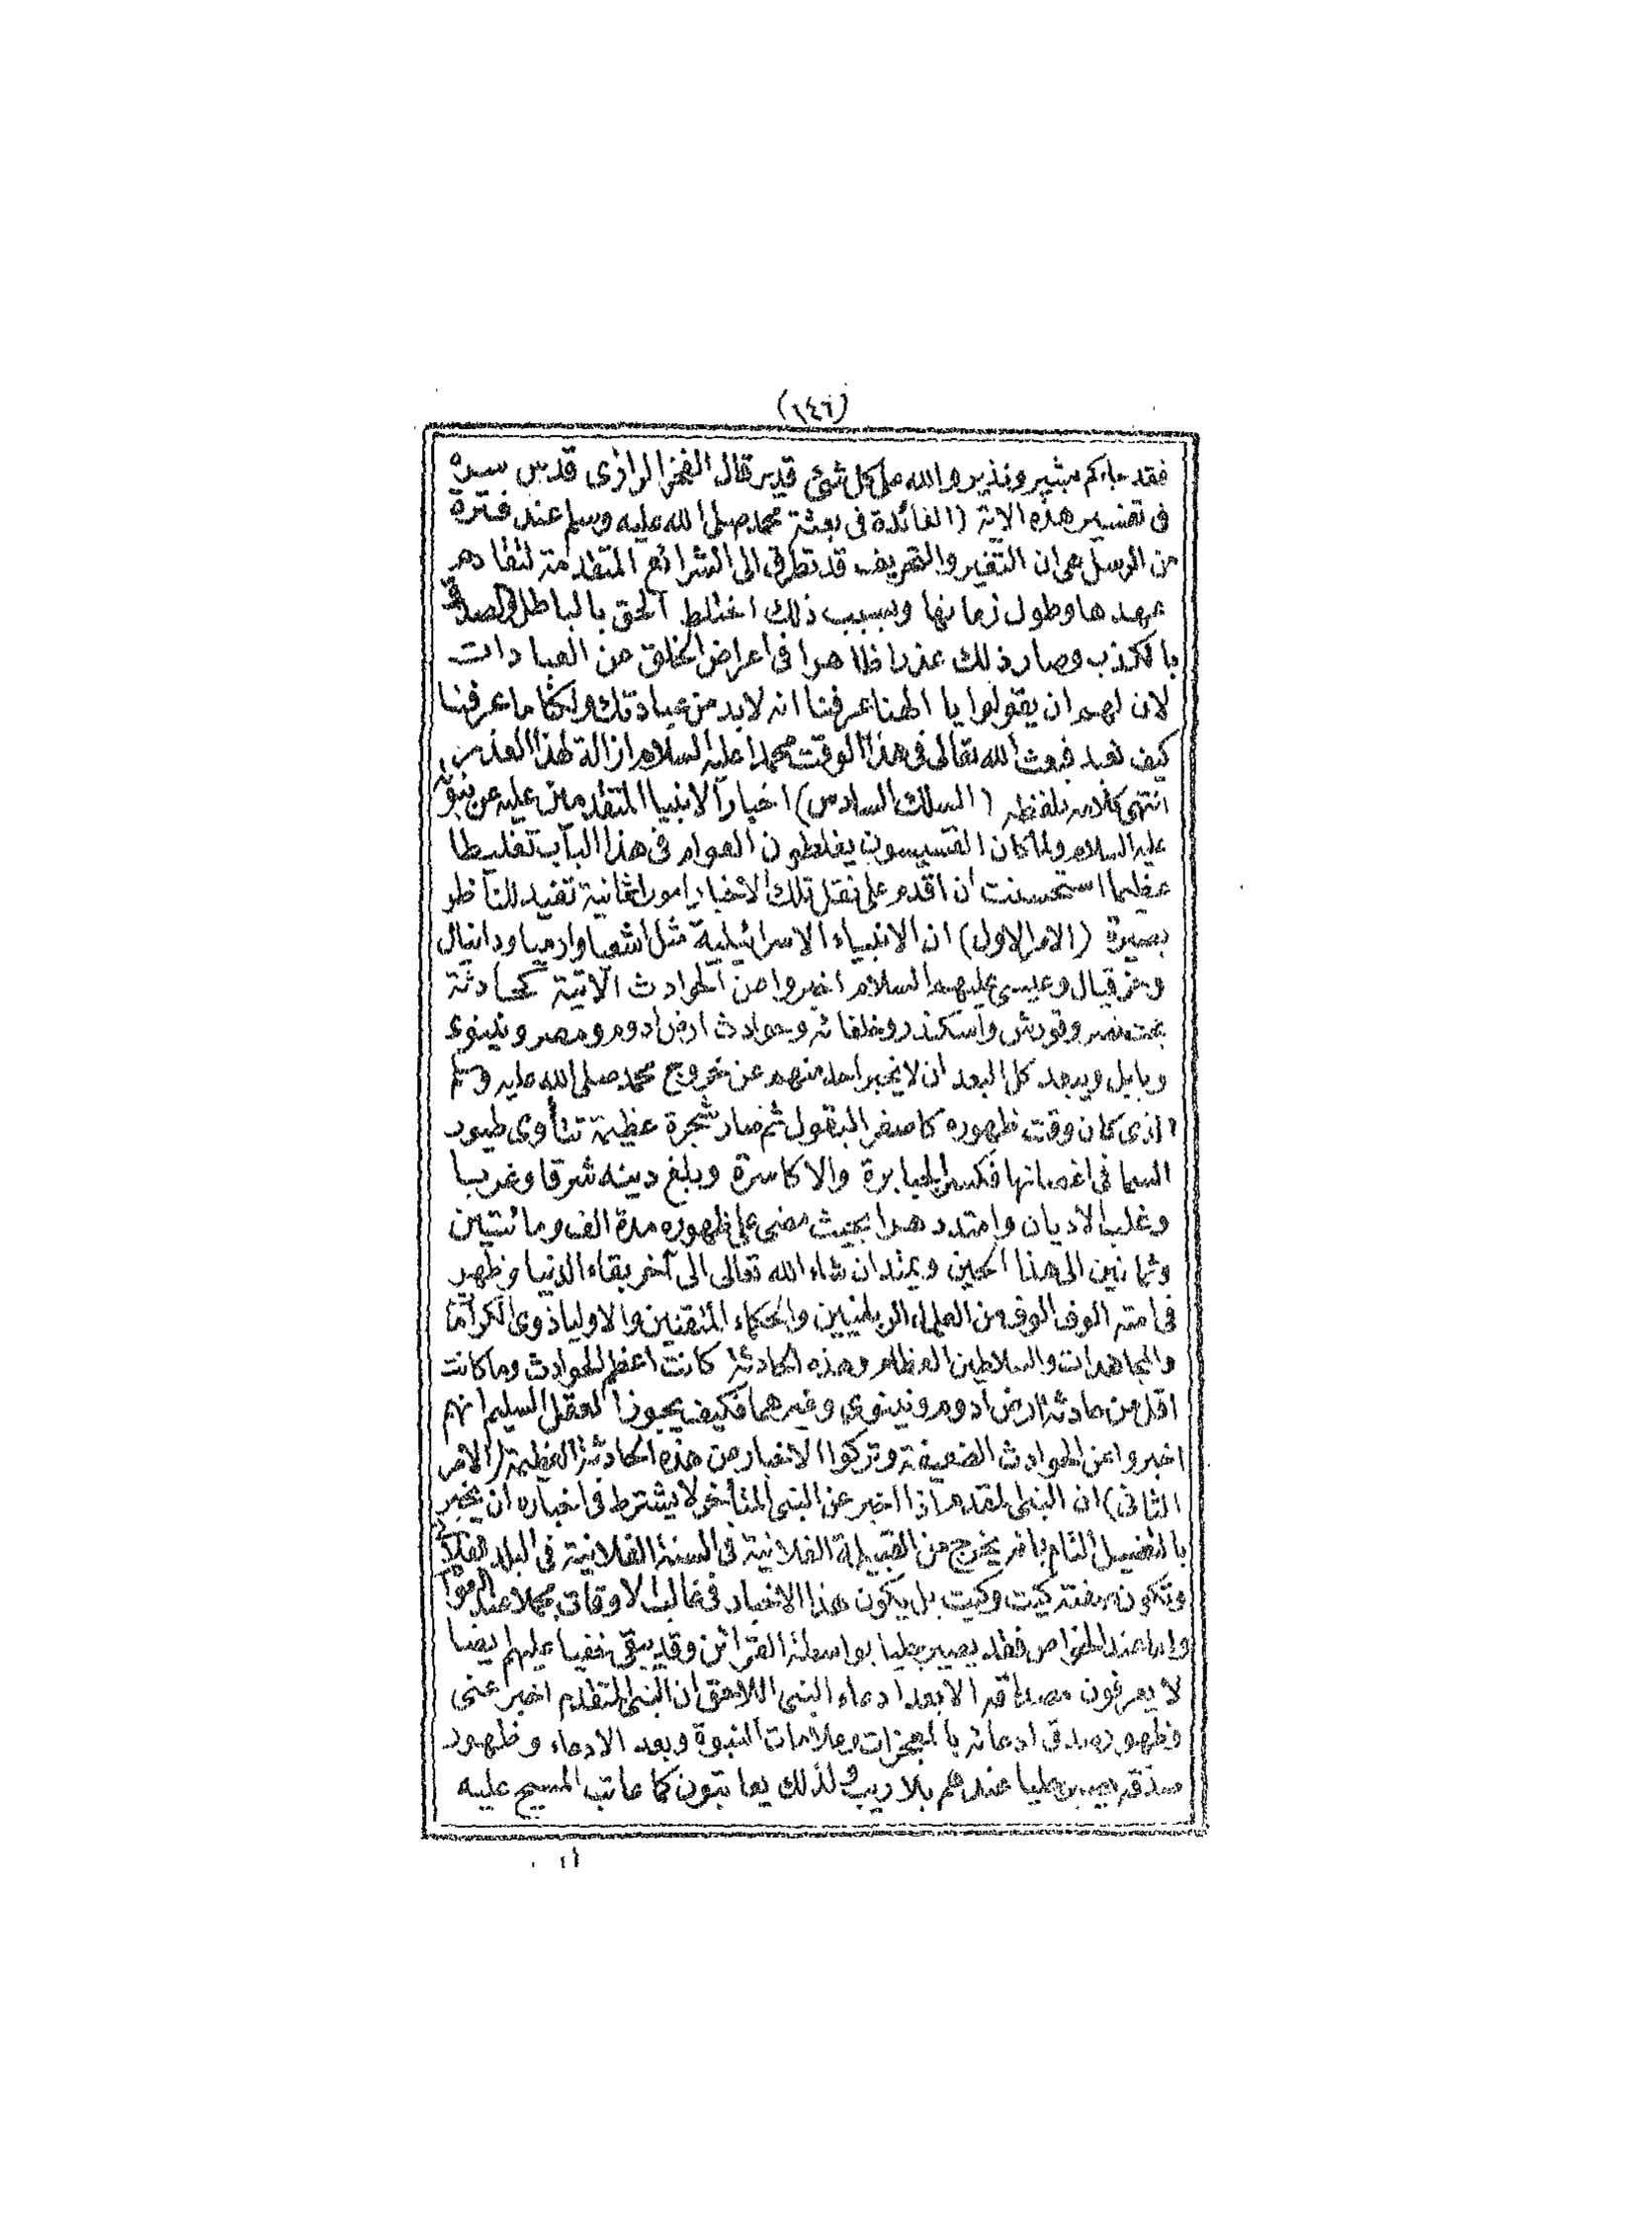 (١٤٦)
فقد جاءكم بشير ونذير والله على كل شئ قدير قال الفخر الرازى قدس سره
فى تفسير هذه الاية (الفائدة فى بعثة محمد صلى الله عليه وسلم عند فترة
من الرسل هى ان التغير والتحريف قد تطرق الى الشرائع المتقدمة لتقادم
عهدها وطول زمانها وبسبب ذلك اختلط الحق بالباطل والصدق
بالكذب وصار ذلك عذرا ظاهرا فى اعراض الخلق عن العبادات
لان لهم ان يقولوا يا الهنا عرفنا انه لابد من عبادتك ولكنا ما عرفنا
كيف نعبد فبعث الله تعالى فى هذا الوقت محمدا عليه السلام ازالة لهذا العذر
انتهى كلامه بلفظه (السلك السادس) اخبار الانبيا المتقدمين عليه عن نبوته
عليه السلام ولما كان القسيسون يغلطون العوام فى هذا الباب تغليطا
عظيما استحسنت ان اقدم على نقل تلك الاخبار امورا ثمانية تفيد للناظر
بصيرة (الامر الاول) ان الانبياء الاسرائيلية مثل اشعيا وارميا ودانيال
وحزقيال وعيسى عليهم السلام اخبروا عن الحوادث الاتية كحادثة
بخت نصر وقورش واسكندر وخلفائه وحوادث ارض ادوم ومصر ونينوى
وبابل ويبعد كل البعد ان لا يخبر احد منهم عن خروج محمد صلى الله عليه وسلم
الذى كان وقت ظهوره كاصغر البقول ثم صار شجرة عظيمة تتأوى طيور
السما فى اغصانها فكسر الجبابرة والاكاسرة وبلغ دينه شرقا وغربا
وغلب الاديان وامتد دهرا بحيث مضى على ظهوره مدة الف ومائتين
وثمانين الى هذا الحين ويمتد ان شاء الله تعالى الى آخر بقاء الدنيا وظهر
فى امته الوف الوف من العلماء الربانيين والحكماء المتقنين والاوليا ذوى الكرامات
والمجاهدات والسلاطين العظام وهذه الحادثة كانت اعظم الحوادث وما كانت
اقل من حادثة ارض ادوم ونينوى وغيرهما فكيف يجوز العقل السليم انهم
اخبروا عن الحوادث الضعيفة وتركوا الاخبار عن هذه الحادثة العظيمة (الامر
الثانى) ان النبى المتقدم اذا اخبر عن النبى المتأخر لا يشترط فى اخباره ان يخبر
بالتفصيل التام بانه يخرج من القبيلة الفلانية فى السنة الفلانية فى البلد الفلانى
وتكون صفته كيت وكيت بل يكون هذا الاخبار فى غالب الاوقات مجملا عند العوام
واما عند الخواص فقد يصير جليا بواسطة القرائن وقد يبقى خفيا عليهم ايضا
لا يعرفون مصداقه الا بعد ادعاء النبى اللاحق ان النبى المتقدم اخبر عنى
وظهور صدق ادعائه بالمعجزات وعلامات النبوة وبعد الادعاء وظهور
صدقه يصير جليا عندهم بلا ريب ولذلك يعاتبون كما عاتب المسيح عليه